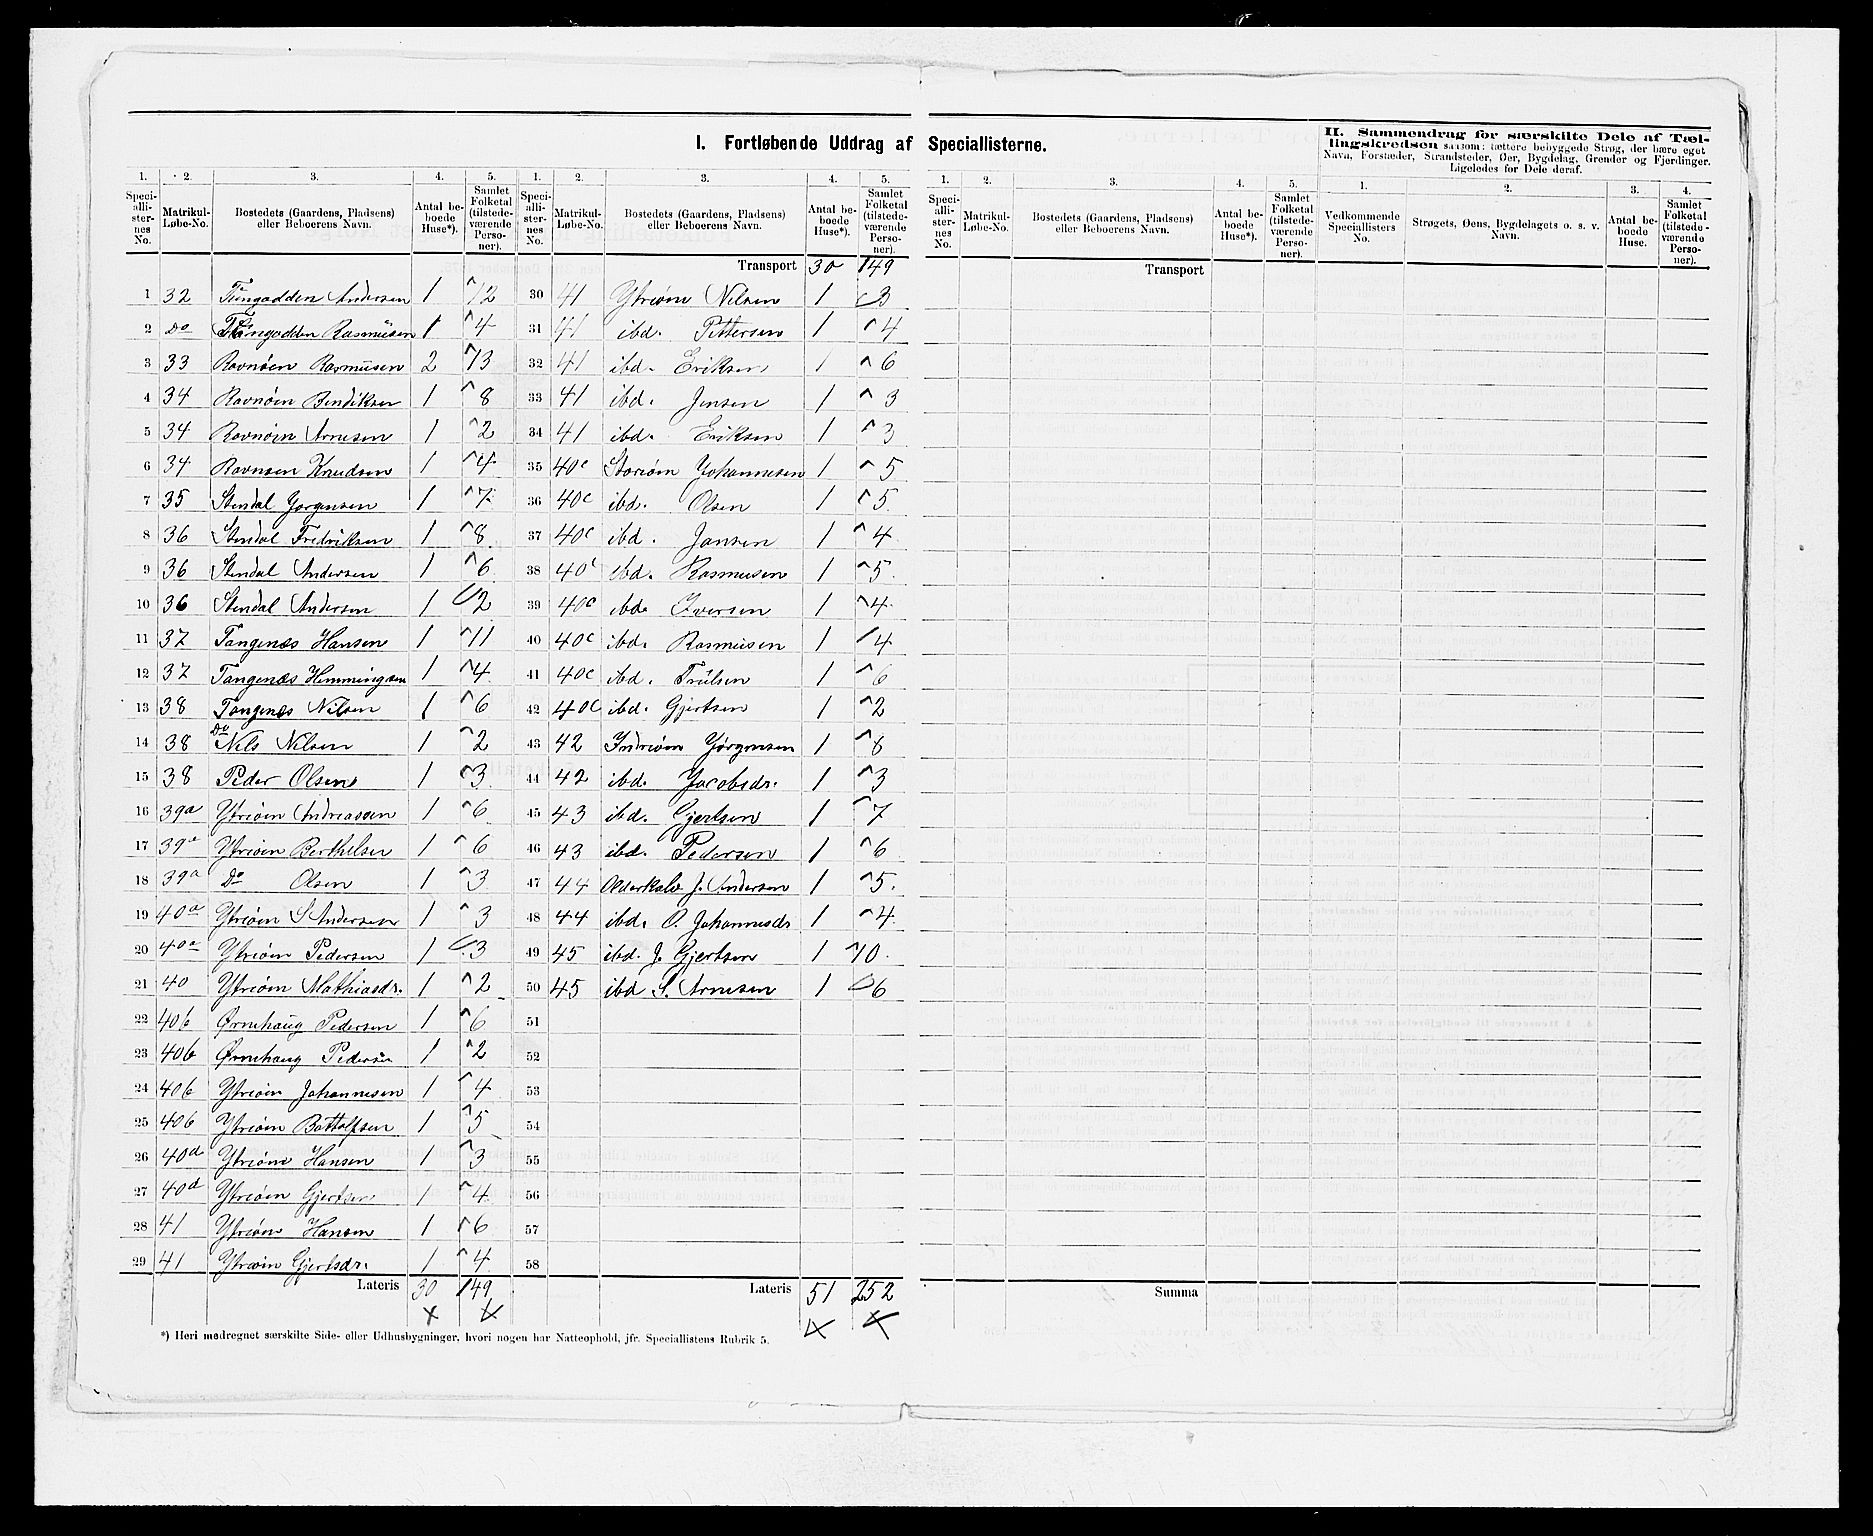 I. Fortløbende Uddrag af Speciallisterne.
II. Sammendrag for særskilte Dele af Tæl-
lingskredsen saasom: tættere bebyggede Strøg, der bære eget
Navn, Forstæder, Strandsteder, Øer, Bygdelag, Grender og Fjerdinger.
Ligeledes for Dele deraf.
1. 2. 3. 4. 5. 1. 2. 3. 4. 5. 1. 2. 3. 4. 5. 1. 2. 3. 4.
Speci-alli-ster-nes No. Matrikul-Løbe-No. Bostedets (Gaardens, Pladsens) eller Beboerens Navn. Antal be-boede Huse*). Samlet Folketal (tilstede-værende Perso-ner).
Speci-alli-ster-nes No. Matrikul-Løbe-No. Bostedets (Gaardens, Pladsens) eller Beboerens Navn. Antal be-boede Huse*). Samlet Folketal (tilstede-værende Perso-ner).
Speci-alli-ster-nes No. Matrikul-Løbe-No. Bostedets (Gaardens, Pladsens) eller Beboerens Navn. Antal be-boede Huse*). Samlet Folketal (tilstede-værende Perso-ner).
Vedkommende Speciallisters No. Strøgets, Øens, Bygdelagets o. s. v. Navn. Antal be-boede Huse. Samlet Folketal (tilstede-værende Perso-ner).
Transport 30 149 Transport
1 32 Andersen 1 12 30 41 Ytreøin Nilsen 1 3
2 Do Rasmüsen 1 4 31 41 ibd. Pettersen 1 4
3 33 Ravnøen Rasmüsen 2 13 32 41 ibd. Eriksen 1 6
4 34 Ravnøin Bendiksen 1 8 33 41 ibd. Jensen 1 3
5 34 Ravnøin Arnesen 1 2 34 41 ibd. Eriksen 1 3
6 34 Ravnøen Knudsen 1 4 35 40c Storøin Johannesen 1 5
7 35 Stendal Jorgensen 1 7 36 40c ibd. Olsen 1 5
8 36 Stendal Fredriksen 1 8 37 40c ibd. Jansen 1 4
9 36 Stendal Andersen 1 6 38 40c ibd. Rasmusen 1 5
10 36 Stendal Andersen 1 2 39 40c ibd. Iversen 1 4
11 37 Tangenæs Hansen 1 11 40 40c ibd. Rasmüsen 1 4
12 37 Tangenæs Hemmingsen 1 4 41 40c ibd. Trülsen 1 6
13 38 Tangenæs Nilsen 1 6 42 40c ibd. Gjertsen 1 2
14 38 Do Nils Nilsen 1 2 43 42 Indreøin Jørgensen 1 8
15 38 Peder Olsen 1 3 44 42 ibd. Jacobsdr. 1 3
16 39a Ytreøin Andreassen 1 6 45 43 ibd. Gjertsen 1 7
17 39a Ytreøin Berthelsen 1 6 46 43 ibd. Pedersen 1 6
18 39a Do Olsen 1 3 47 44 Olderkalv J. Andersen 1 5
19 40a Ytreøin S Andersen 1 3 48 44 ibd. O. Johannesdr 1 4
20 40a Ytreøin Pedersen 1 3 49 45 ibd. J. Gjertsen 1 10
21 40 Ytreøin Mathiasdr. 1 2 50 45 ibd S. Arnesen 1 6
22 40b Ørnehaug Pedersen 1 6 51
23 40b Ørnehaug Pedersen 1 2 52
24 40b Ytreøin Johannesen 1 4 53
25 40b Ytreøin Bottolfsen 1 5 54
26 40d Ytreøin Hansen 1 3 55
27 40d Ytreøin Gjertsen 1 4 56
28 41 Ytreøin Hansen 1 6 57
29 41 Ytreøin Gjertsdr. 1 4 58
Lateris 30 149 Lateris 51 252 Summa
*) Heri medregnet særskilte Side- eller Udhusbygninger, hvori nogen har Natteophold, jfr. Speciallistens Rubrik 5.